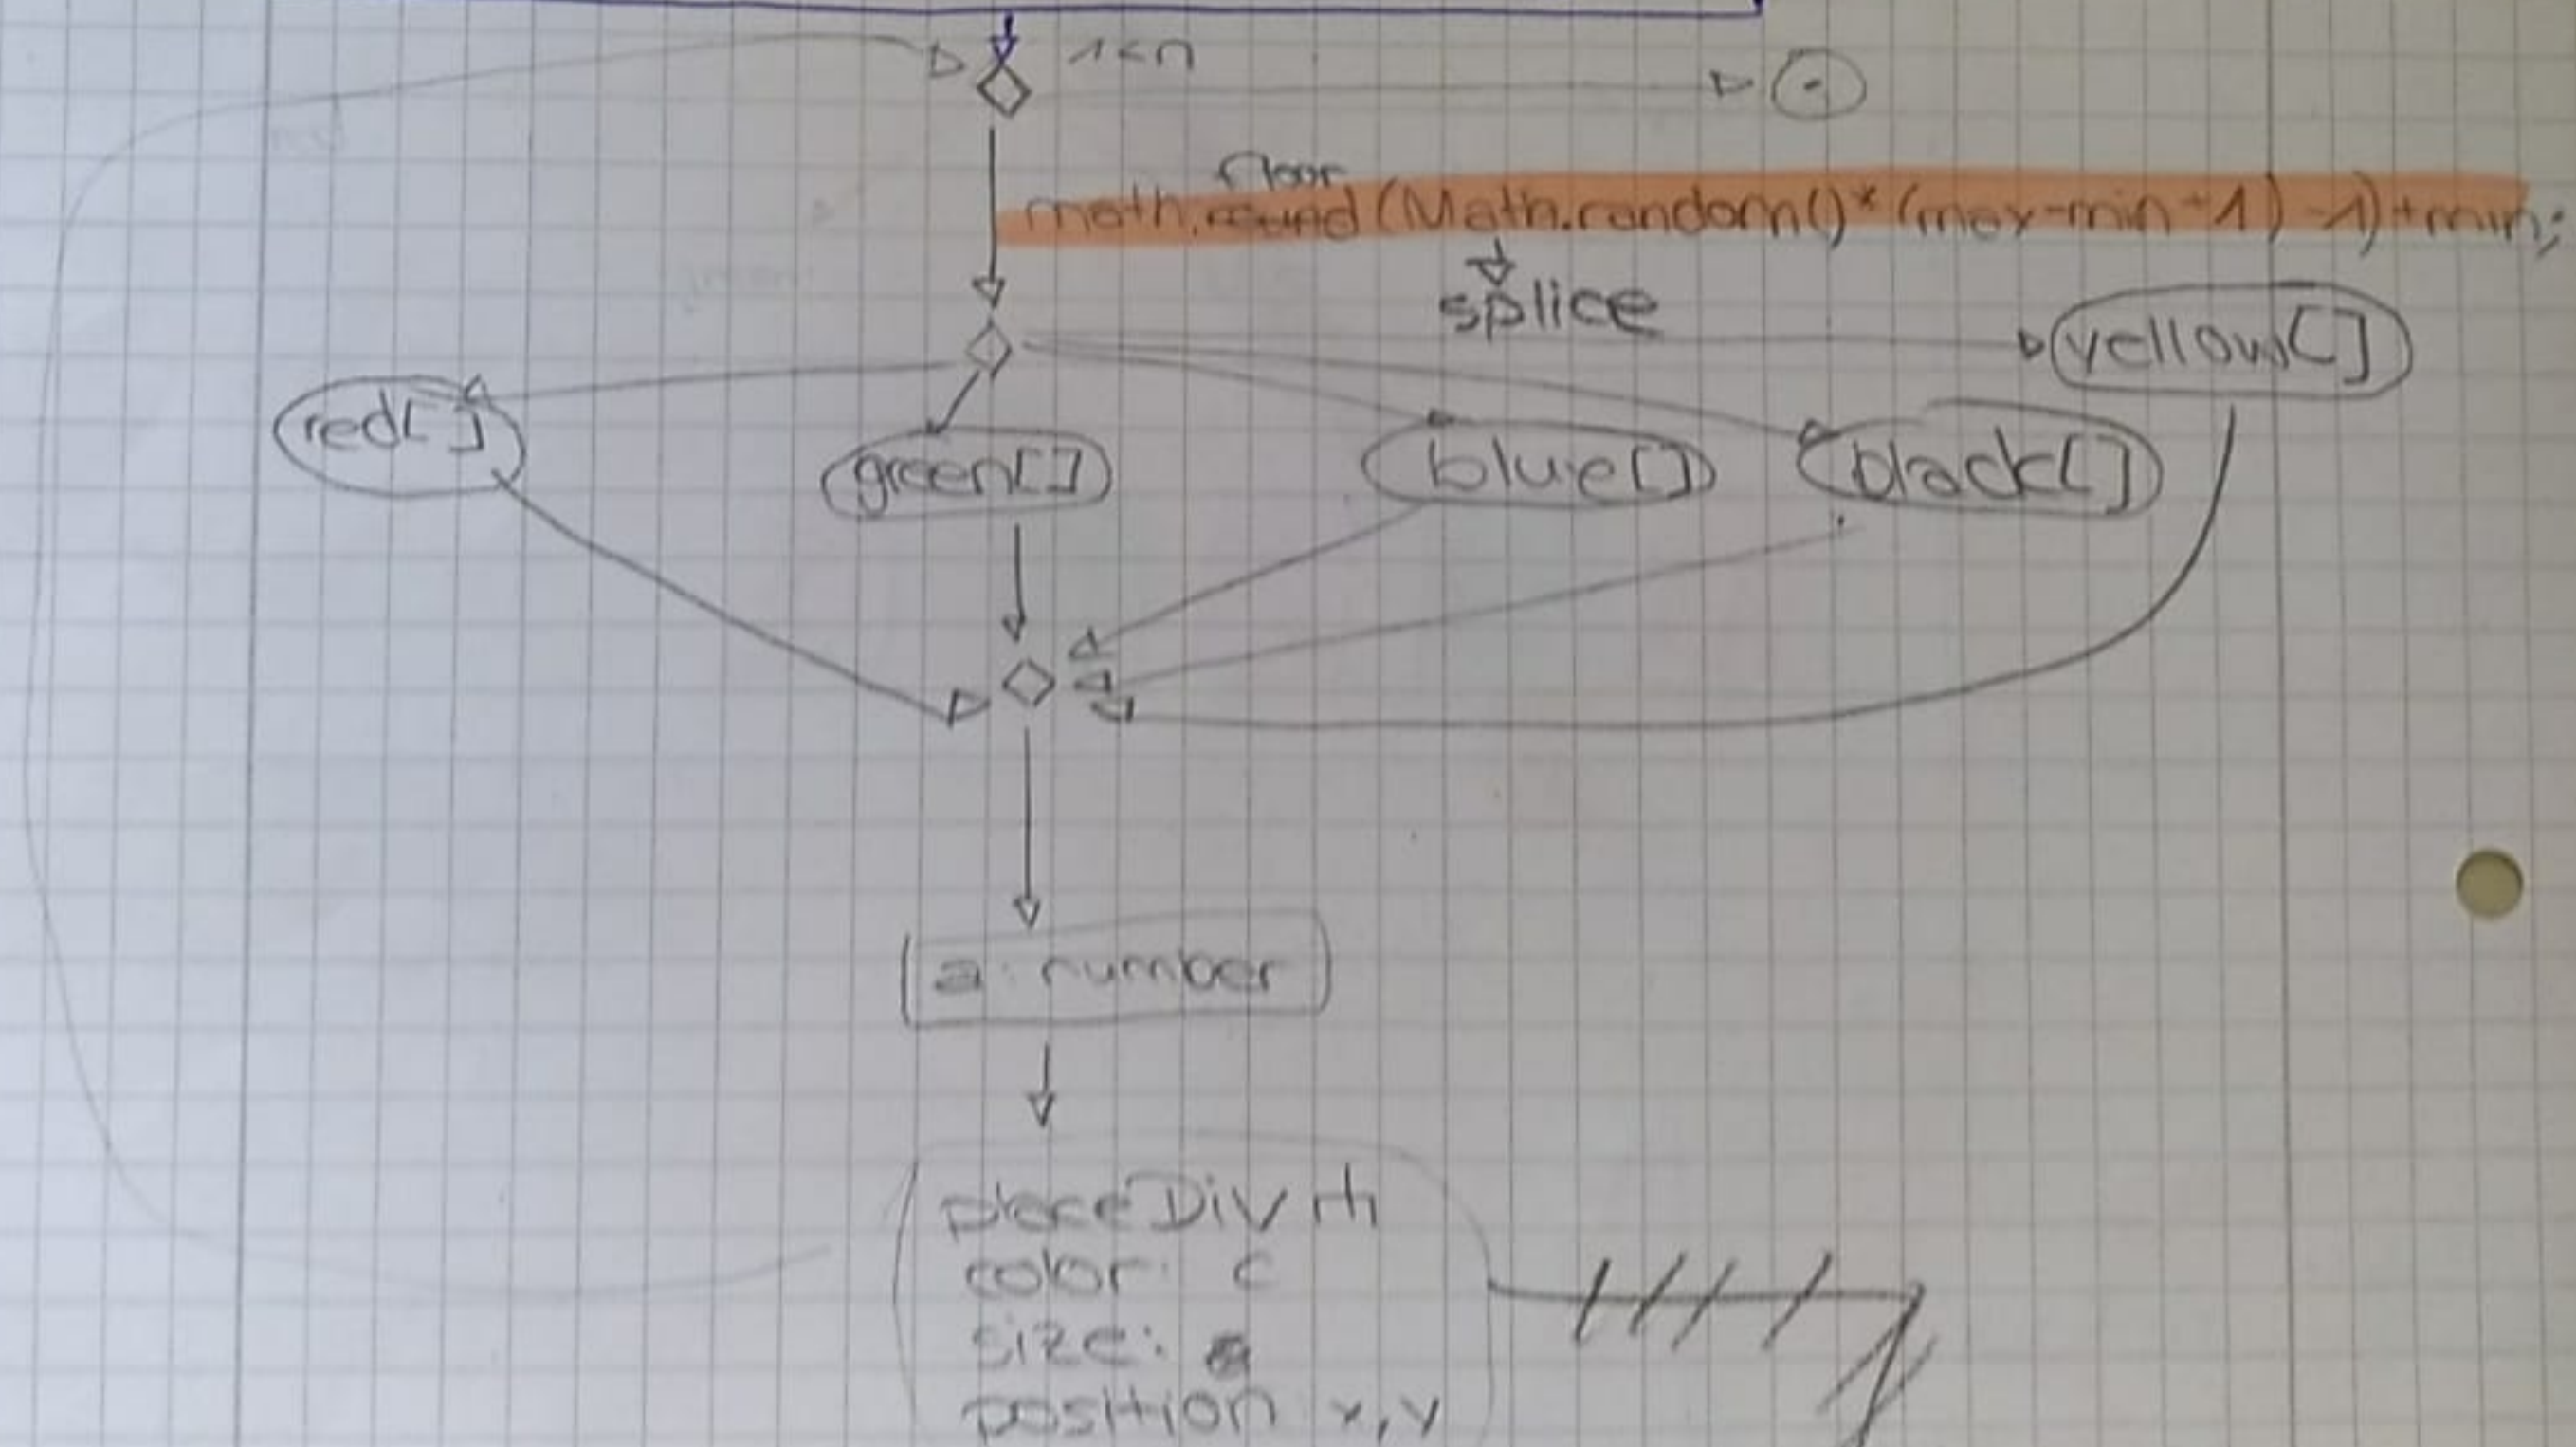 1<n
floor
math.round (Math.random()* (max-min+1)-1)+min;
splice
yellow[]
red[]
green[]
blue[]
black[]
a: number
placeDiv
color: c
size: a
position x,y